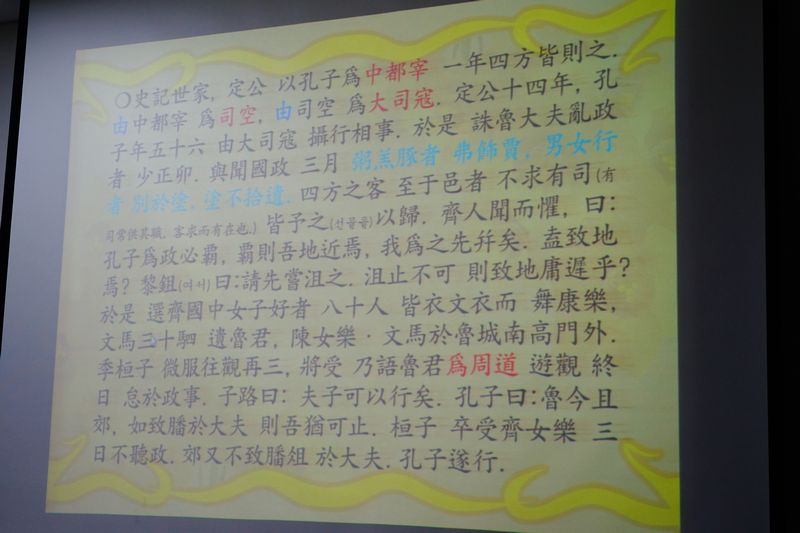 ○史記世家, 定公 以孔子爲中都宰 一年四方皆則之.
由中都宰 爲司空, 由司空 爲大司寇. 定公十四年, 孔
子年五十六 由大司寇 攝行相事. 於是 誅魯大夫亂政
者 少正卯. 與聞國政 三月 粥羔豚者 弗飾賈, 男女行
者 別於塗, 塗不拾遺. 四方之客 至于邑者 不求有司(有
司常供其職, 客求而有在也.) 皆予之(선물을)以歸. 齊人聞而懼, 曰:
孔子爲政必霸, 霸則吾地近焉, 我爲之先幷矣. 盍致地
焉? 黎鉏(여서)曰:請先嘗沮之. 沮止不可 則致地庸遲乎?
於是 選齊國中女子好者 八十人 皆衣文衣而 舞康樂,
文馬三十駟 遺魯君, 陳女樂‧文馬於魯城南高門外.
季桓子 微服往觀再三, 將受 乃語魯君爲周道 遊觀 終
日 怠於政事. 子路曰: 夫子可以行矣. 孔子曰:魯今且
郊, 如致膰於大夫 則吾猶可止. 桓子 卒受齊女樂 三
日不聽政. 郊又不致膰俎 於大夫. 孔子遂行.